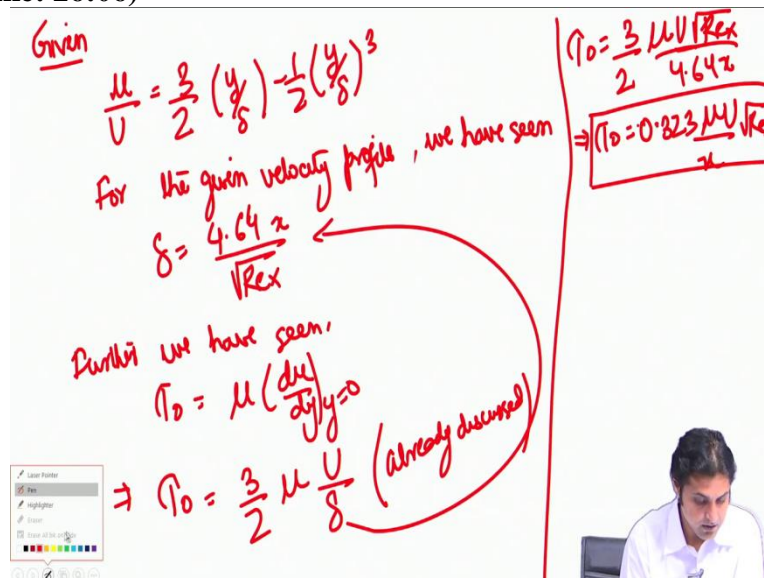 Given
u/U = 3/2 (y/δ) - 1/2 (y/δ)^3
For the given velocity profile, we have seen
δ = 4.64 x / √Rex
Further we have seen,
τ0 = μ (du/dy)y=0
⇒ τ0 = 3/2 μ U/δ (already discussed)
τ0 = 3/2 μU√Rex / 4.64x
⇒ τ0 = 0.323 μU/x √Re
Laser Pointer
Pen
Highlighter
Eraser